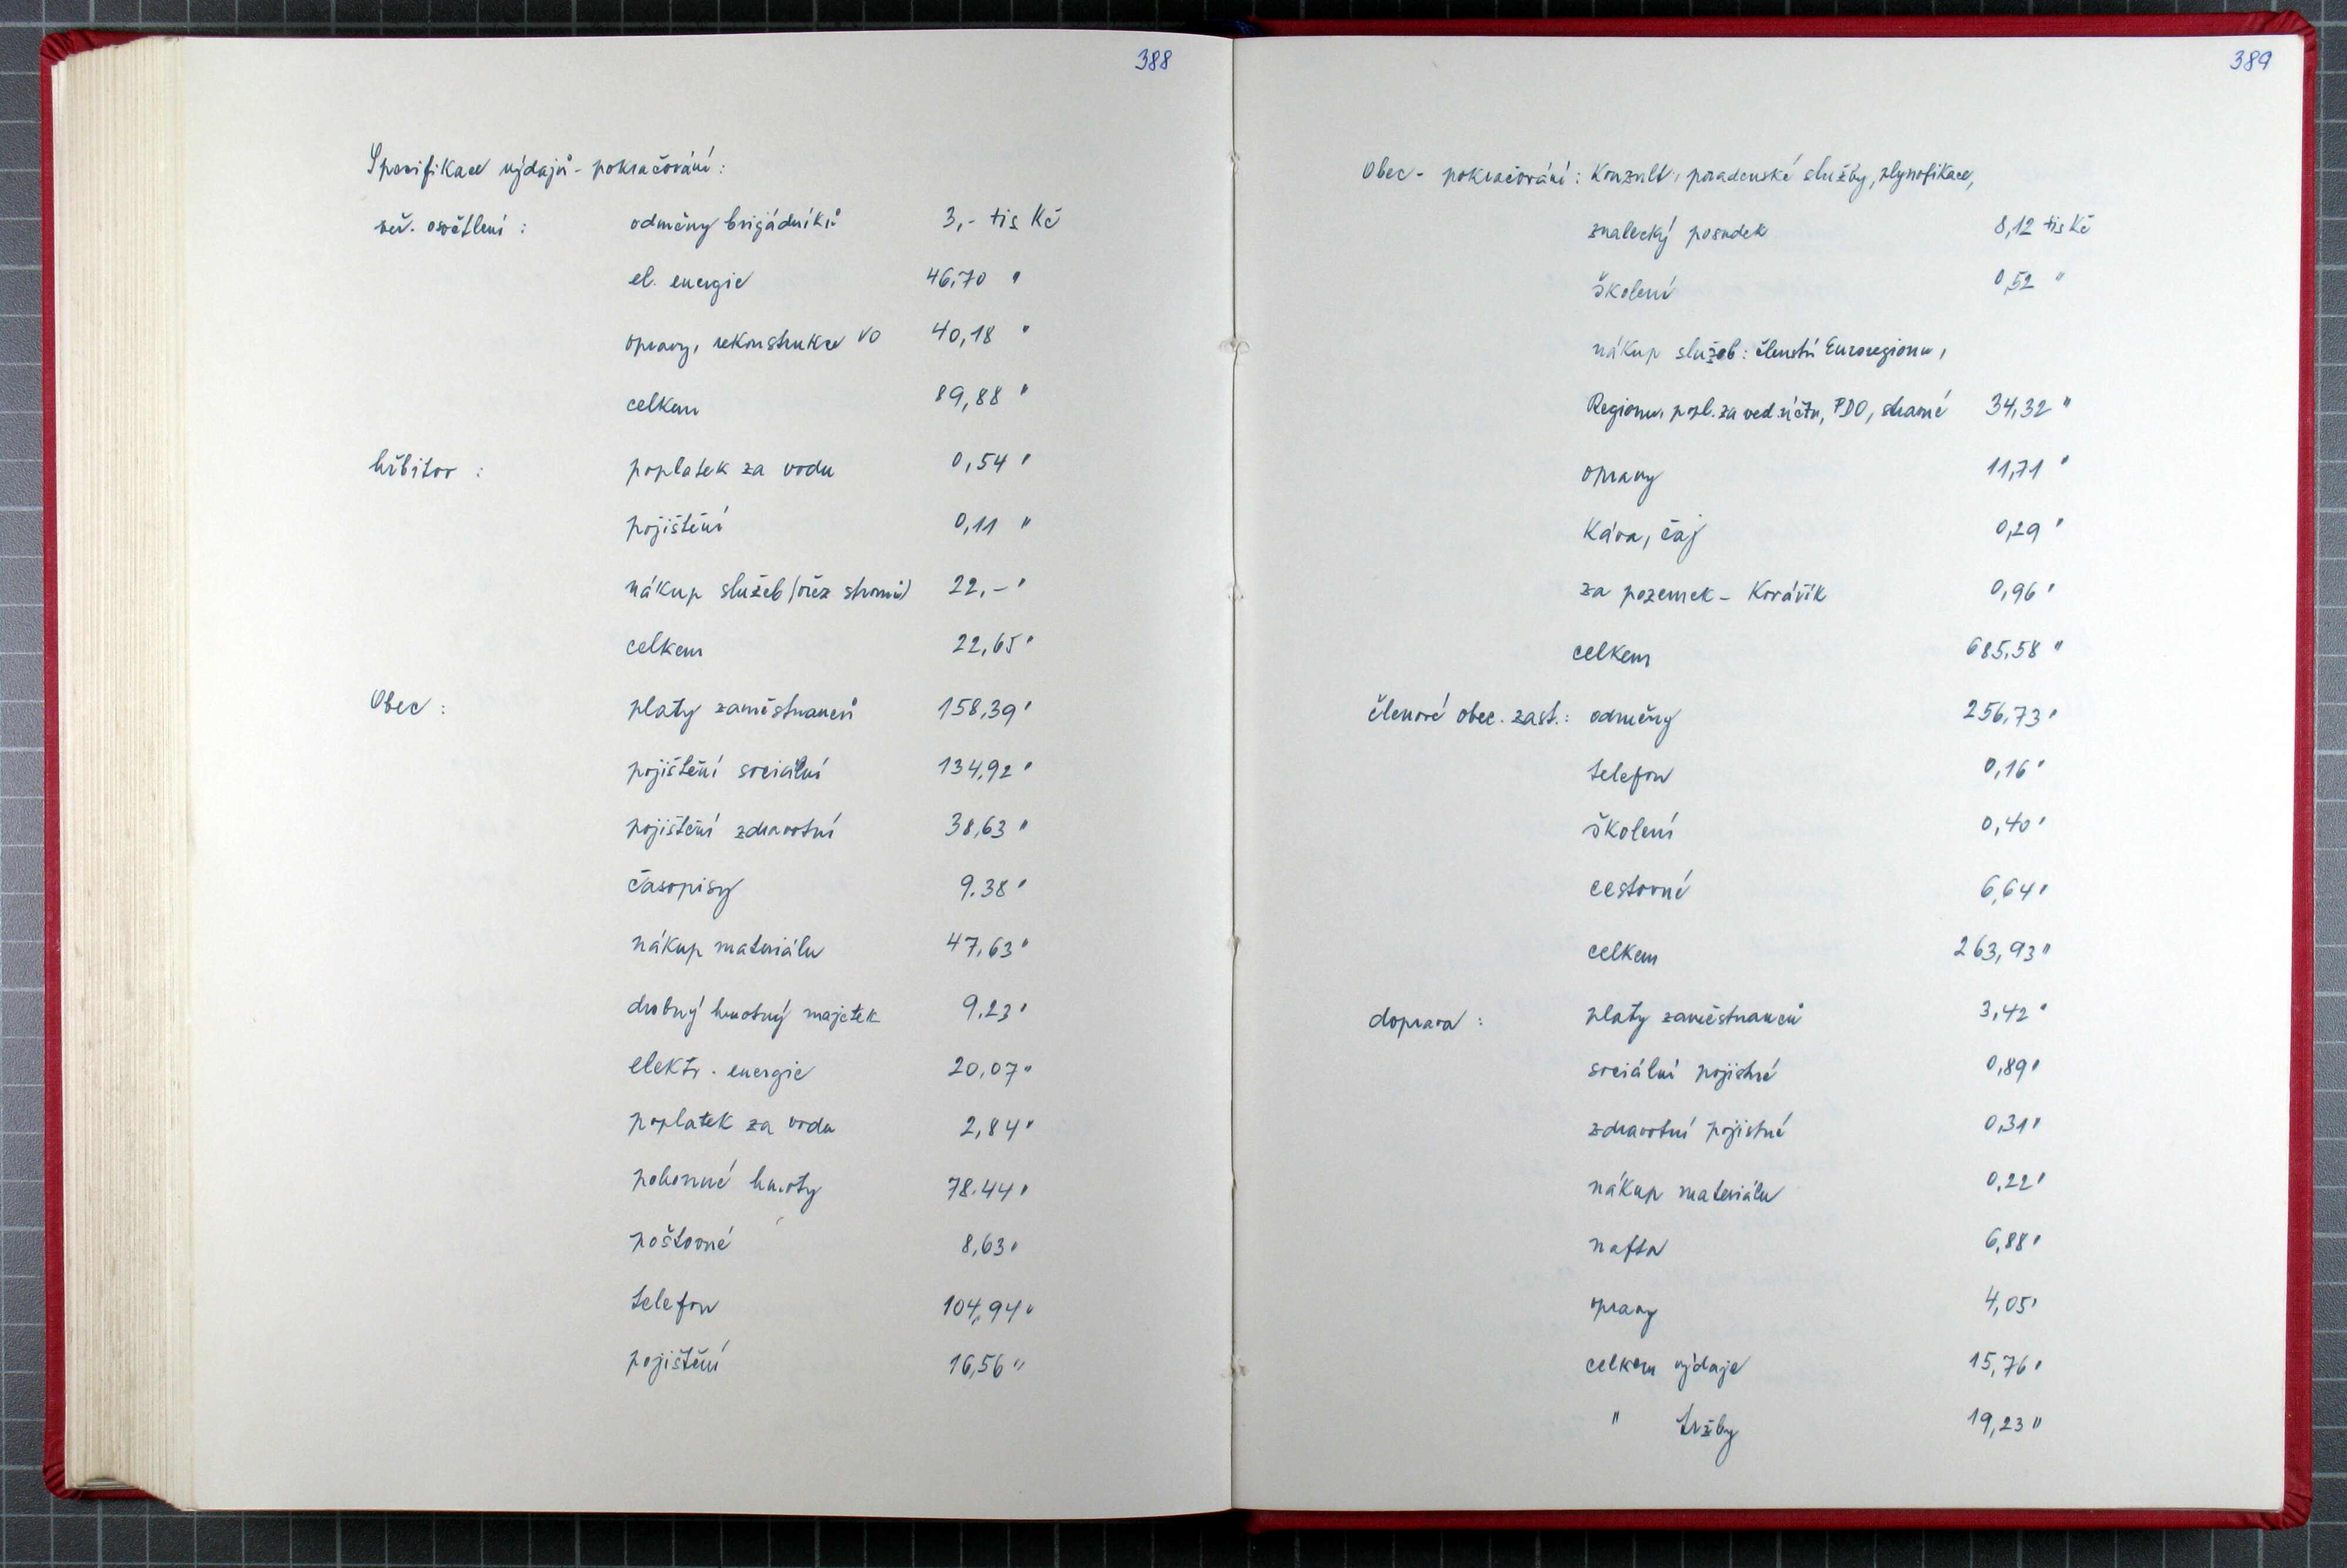 388
Specifikace výdajů - pokračování:
veř. osvětlení : odměny brigádníků 3,- tis Kč
el. energie 46,70 "
opravy, rekonstrukce VO 40,18 "
celkem 89,88 "
hřbitov : poplatek za vodu 0,54 "
pojištění 0,11 "
nákup služeb (ořez stromů) 22,- "
celkem 22,65 "
Obec : platy zaměstnanců 158,39 "
pojištění sociální 134,92 "
pojištění zdravotní 38,63 "
časopisy 9.38 "
nákup materiálu 47,63 "
drobný hmotný majetek 9,23 "
elektr. energie 20,07 "
poplatek za vodu 2,84 "
pohonné hmoty 78.44 "
poštovné 8,63 "
telefon 104,94 "
pojištění 16,56 "
389
Obec - pokračování : Konzult., poradenské služby, plynofikace,
znalecký posudek 8,12 tis Kč
školení 0,52 "
nákup služeb : členství Euroregionu,
Regionu, popl. za ved. účtu, PDO, stravné 34,32 "
opravy 11,71 "
Káva, čaj 0,29 "
za pozemek - Kovářík 0,96 "
celkem 685,58 "
členové obec. zast. : odměny 256,73 "
telefon 0,16 "
školení 0,40 "
cestovné 6,64 "
celkem 263,93 "
doprava : platy zaměstnanců 3,42 "
sociální pojistné 0,89 "
zdravotní pojistné 0,31 "
nákup materiálu 0,22 "
nafta 6,88 "
opravy 4,05 "
celkem výdaje 15,76 "
" tržby 19,23 "